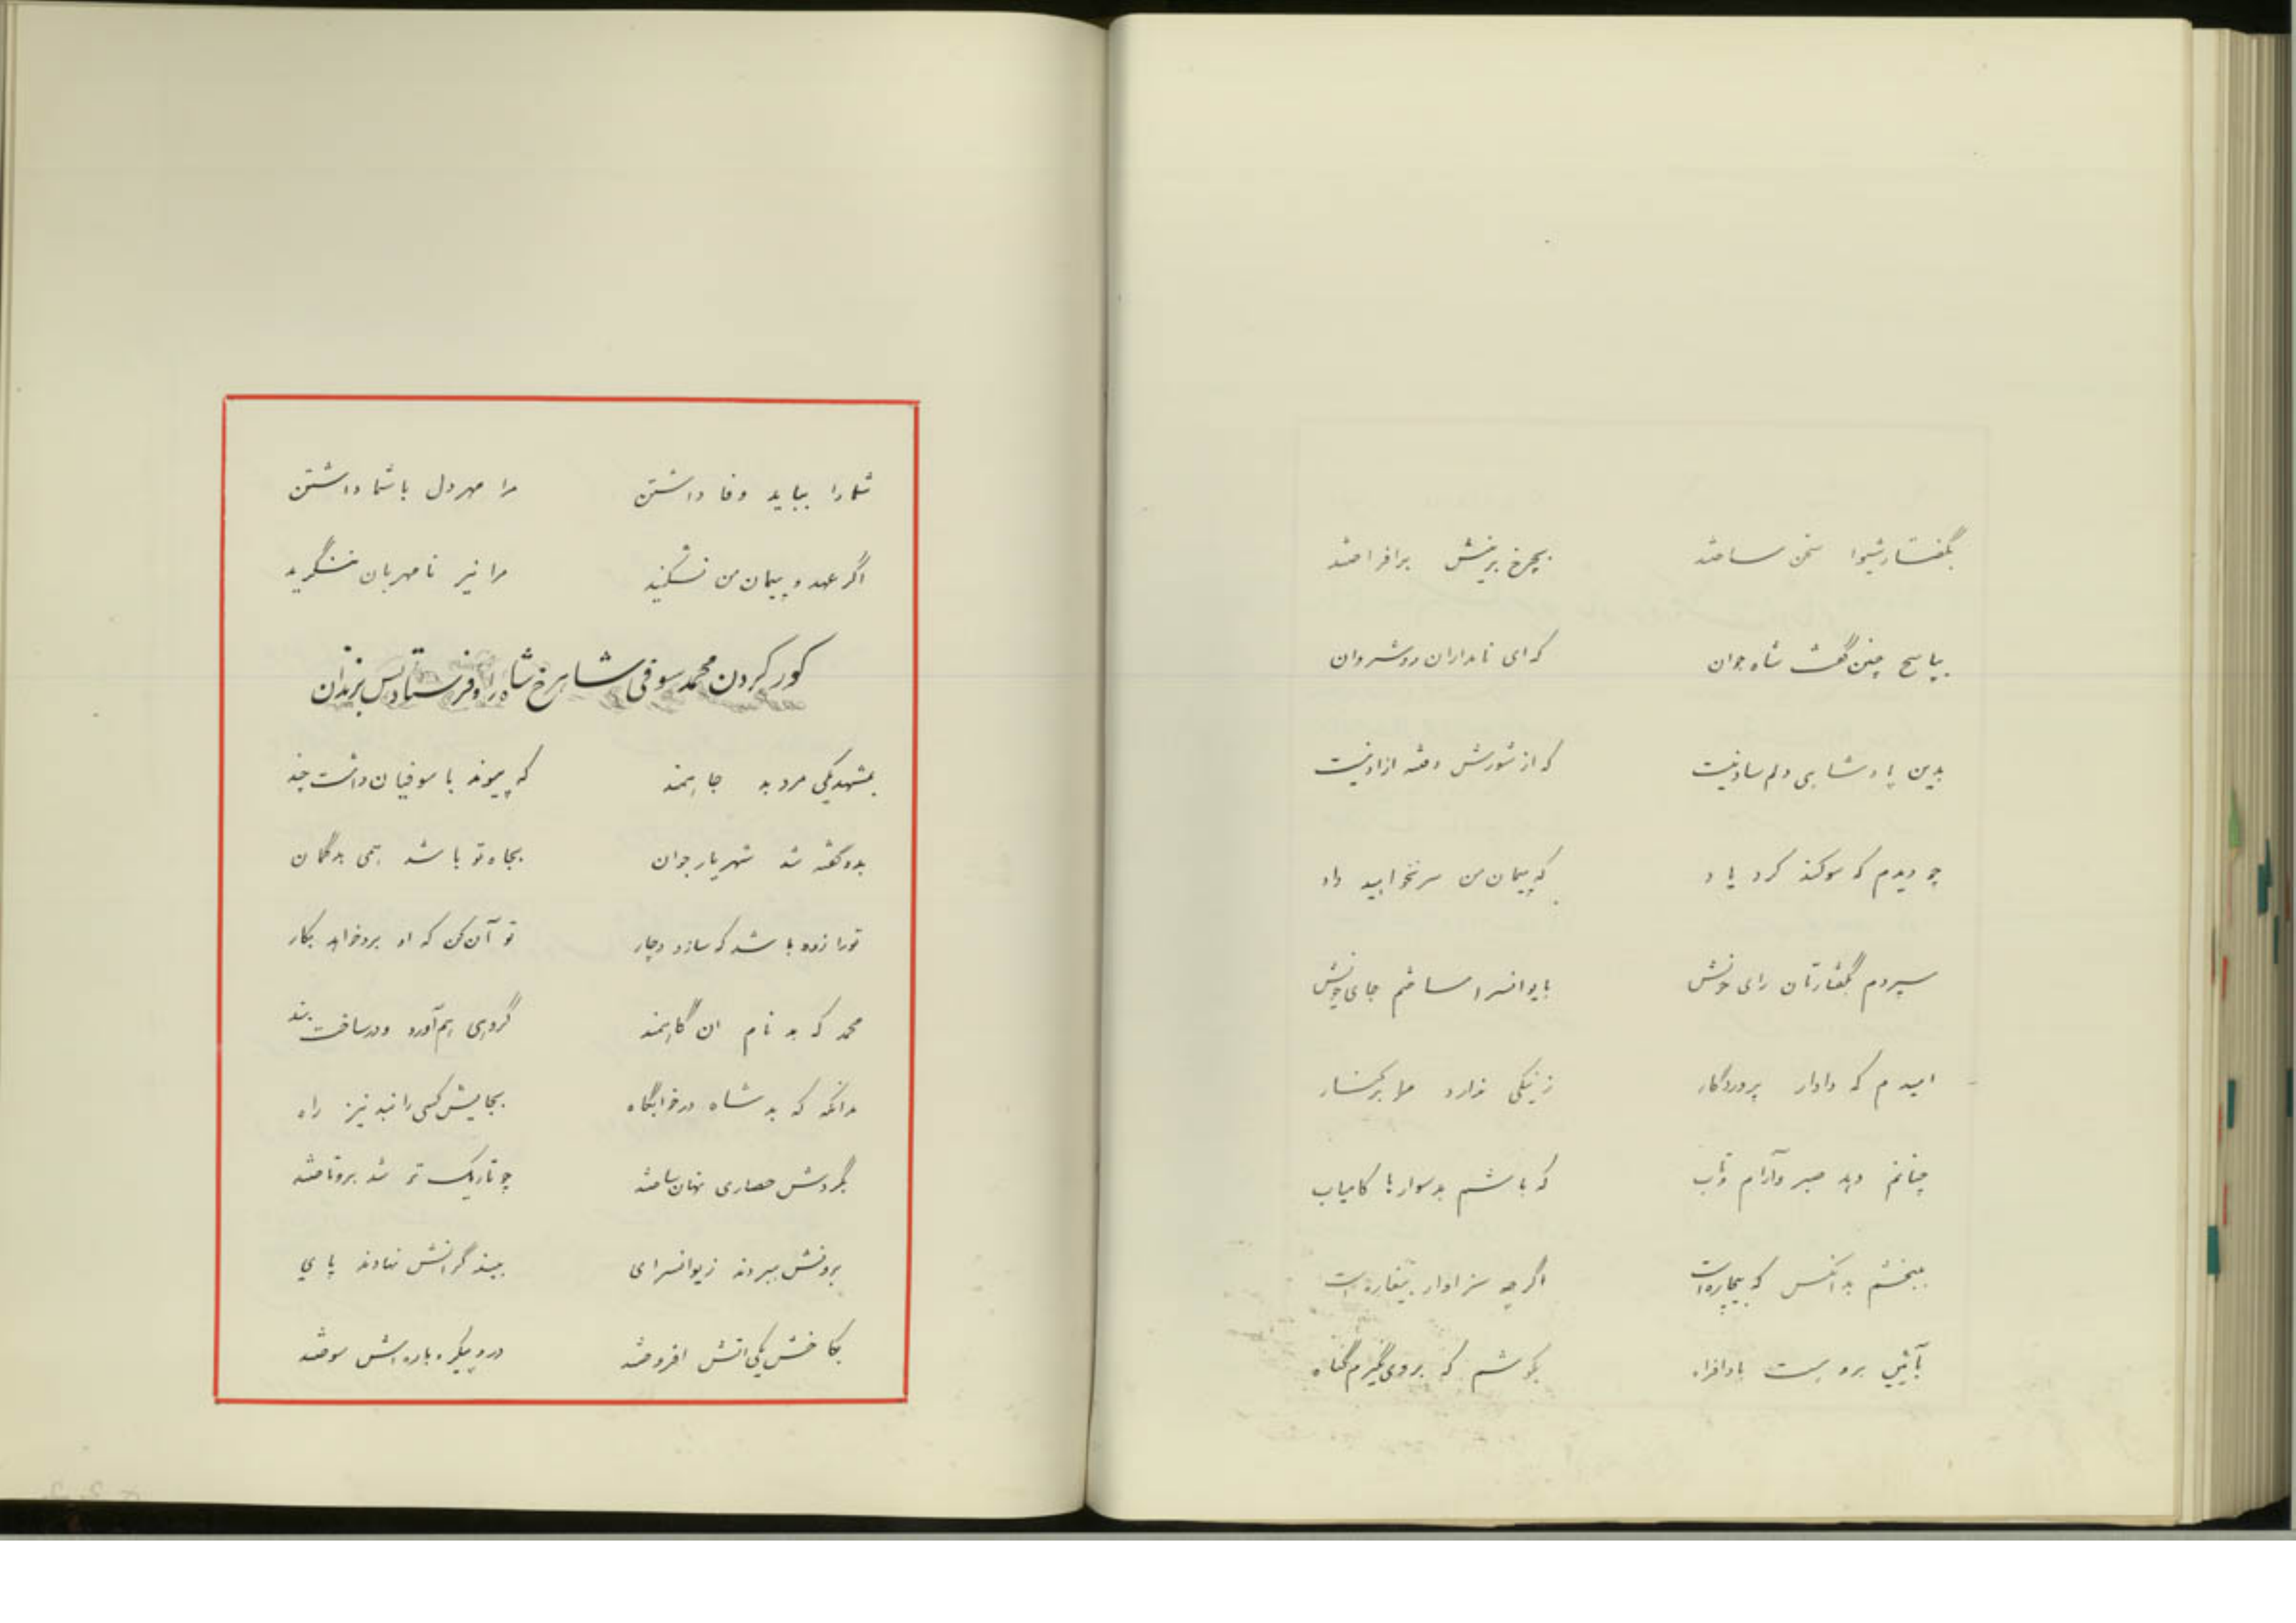 بگفتار شیوا سخن ساختند بچرخ برینش برافراختند
بپاسخ چنین گفت شاه جوان که ای نامداران روشنروان
بدین پادشاهی دلم شاد نیست که از شورش و فتنه ازاد نیست
چو دیدم که سوکند کرد یاد که پیمان من سر نخواهید داد
سپردم بگفتارتان رای خویش بایوانسرا ساختم جای خویش
امیدم که دادار پروردگار ز نیکی ندارد مرا برکنار
چنانم دهد صبر و آرام و تاب که باشم بدسوارها کامیاب
ببخشم بدانکس که بیچاره است اگر چه سزاوار بیغاره است
بآئین برو بست بادافراه بکوشم که بروی نگیرم گناه
شما را بباید وفا داشتن مرا مهر دل با شما داشتن
اگر عهد و پیمان من نشکنید مرا نیز نامهربان ننگرید
کور کردن محمد سوفی شاهرخ شاه را و فرستادنس بزندان
بمشهد یکی مرد بد جاهمند که پیوند با سوفیان داشت چند
بدو گفته شد شهریار جوان بجاه تو باشد همی بدگمان
تو را زود باشد که سازد دچار تو آن کن که او برد خواهد بکار
محمد که بد نام ان گاهمند گروهی بهم آورد و درساخت بند
بدانگه که بد شاه در خوابگاه بجایش کسی را نبد نیز راه
بگردش حصاری نهان ساختند چو تاریک تر شد برو تاختند
برونش ببردند ز یوانسرای ببند گرانش نهادند پای
بکاخش یکی اتش افروختند در و پیکر و باره اش سوختند